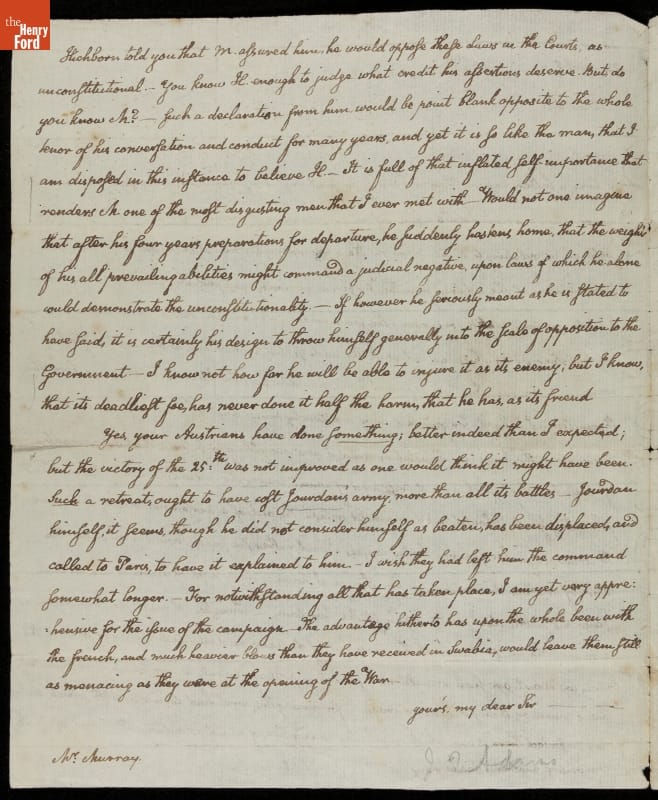 the
Henry
Ford
Hichborn told you that M. assured him, he would oppose these Laws in the Courts, as
unconstitutional. — You know H. enough to judge what credit his assertions deserve. But do
you know M? — Such a declaration from him, would be point blank opposite to the whole
tenor of his conversation and conduct for many years, and yet it is so like the man, that I
am disposed in this instance to believe H. — It is full of that inflated self-importance that
renders M. one of the most disgusting men that I ever met with — Would not one imagine
that after his four years preparations for departure, he suddenly hastens home, that the weight
of his all prevailing abilities might command a judicial negative, upon laws of which he alone
could demonstrate the unconstitutionality. — If however he seriously meant as he is stated to
have said, it is certainly his design to throw himself generally into the scale of opposition to the
Government — I know not how far he will be able to injure it as its enemy; but I know,
that its deadliest foe, has never done it half the harm, that he has, as its friend
Yes, your Austrians have done something; better indeed than I expected;
but the victory of the 25.th was not improved as one would think it might have been.
Such a retreat, ought to have cost Jourdan's army, more than all its battles — Jourdan
himself, it seems, though he did not consider himself as beaten, has been displaced, and
called to Paris, to have it explained to him — I wish they had left him the command
somewhat longer. — For notwithstanding all that has taken place, I am yet very appre:
:hensive for the issue of the campaign — The advantage hitherto has upon the whole been with
the french, and much heavier blows than they have received in Swabia, would leave them still
as menacing as they were at the opening of the War
yours, my dear Sir
Mr. Murray.
J Q Adams